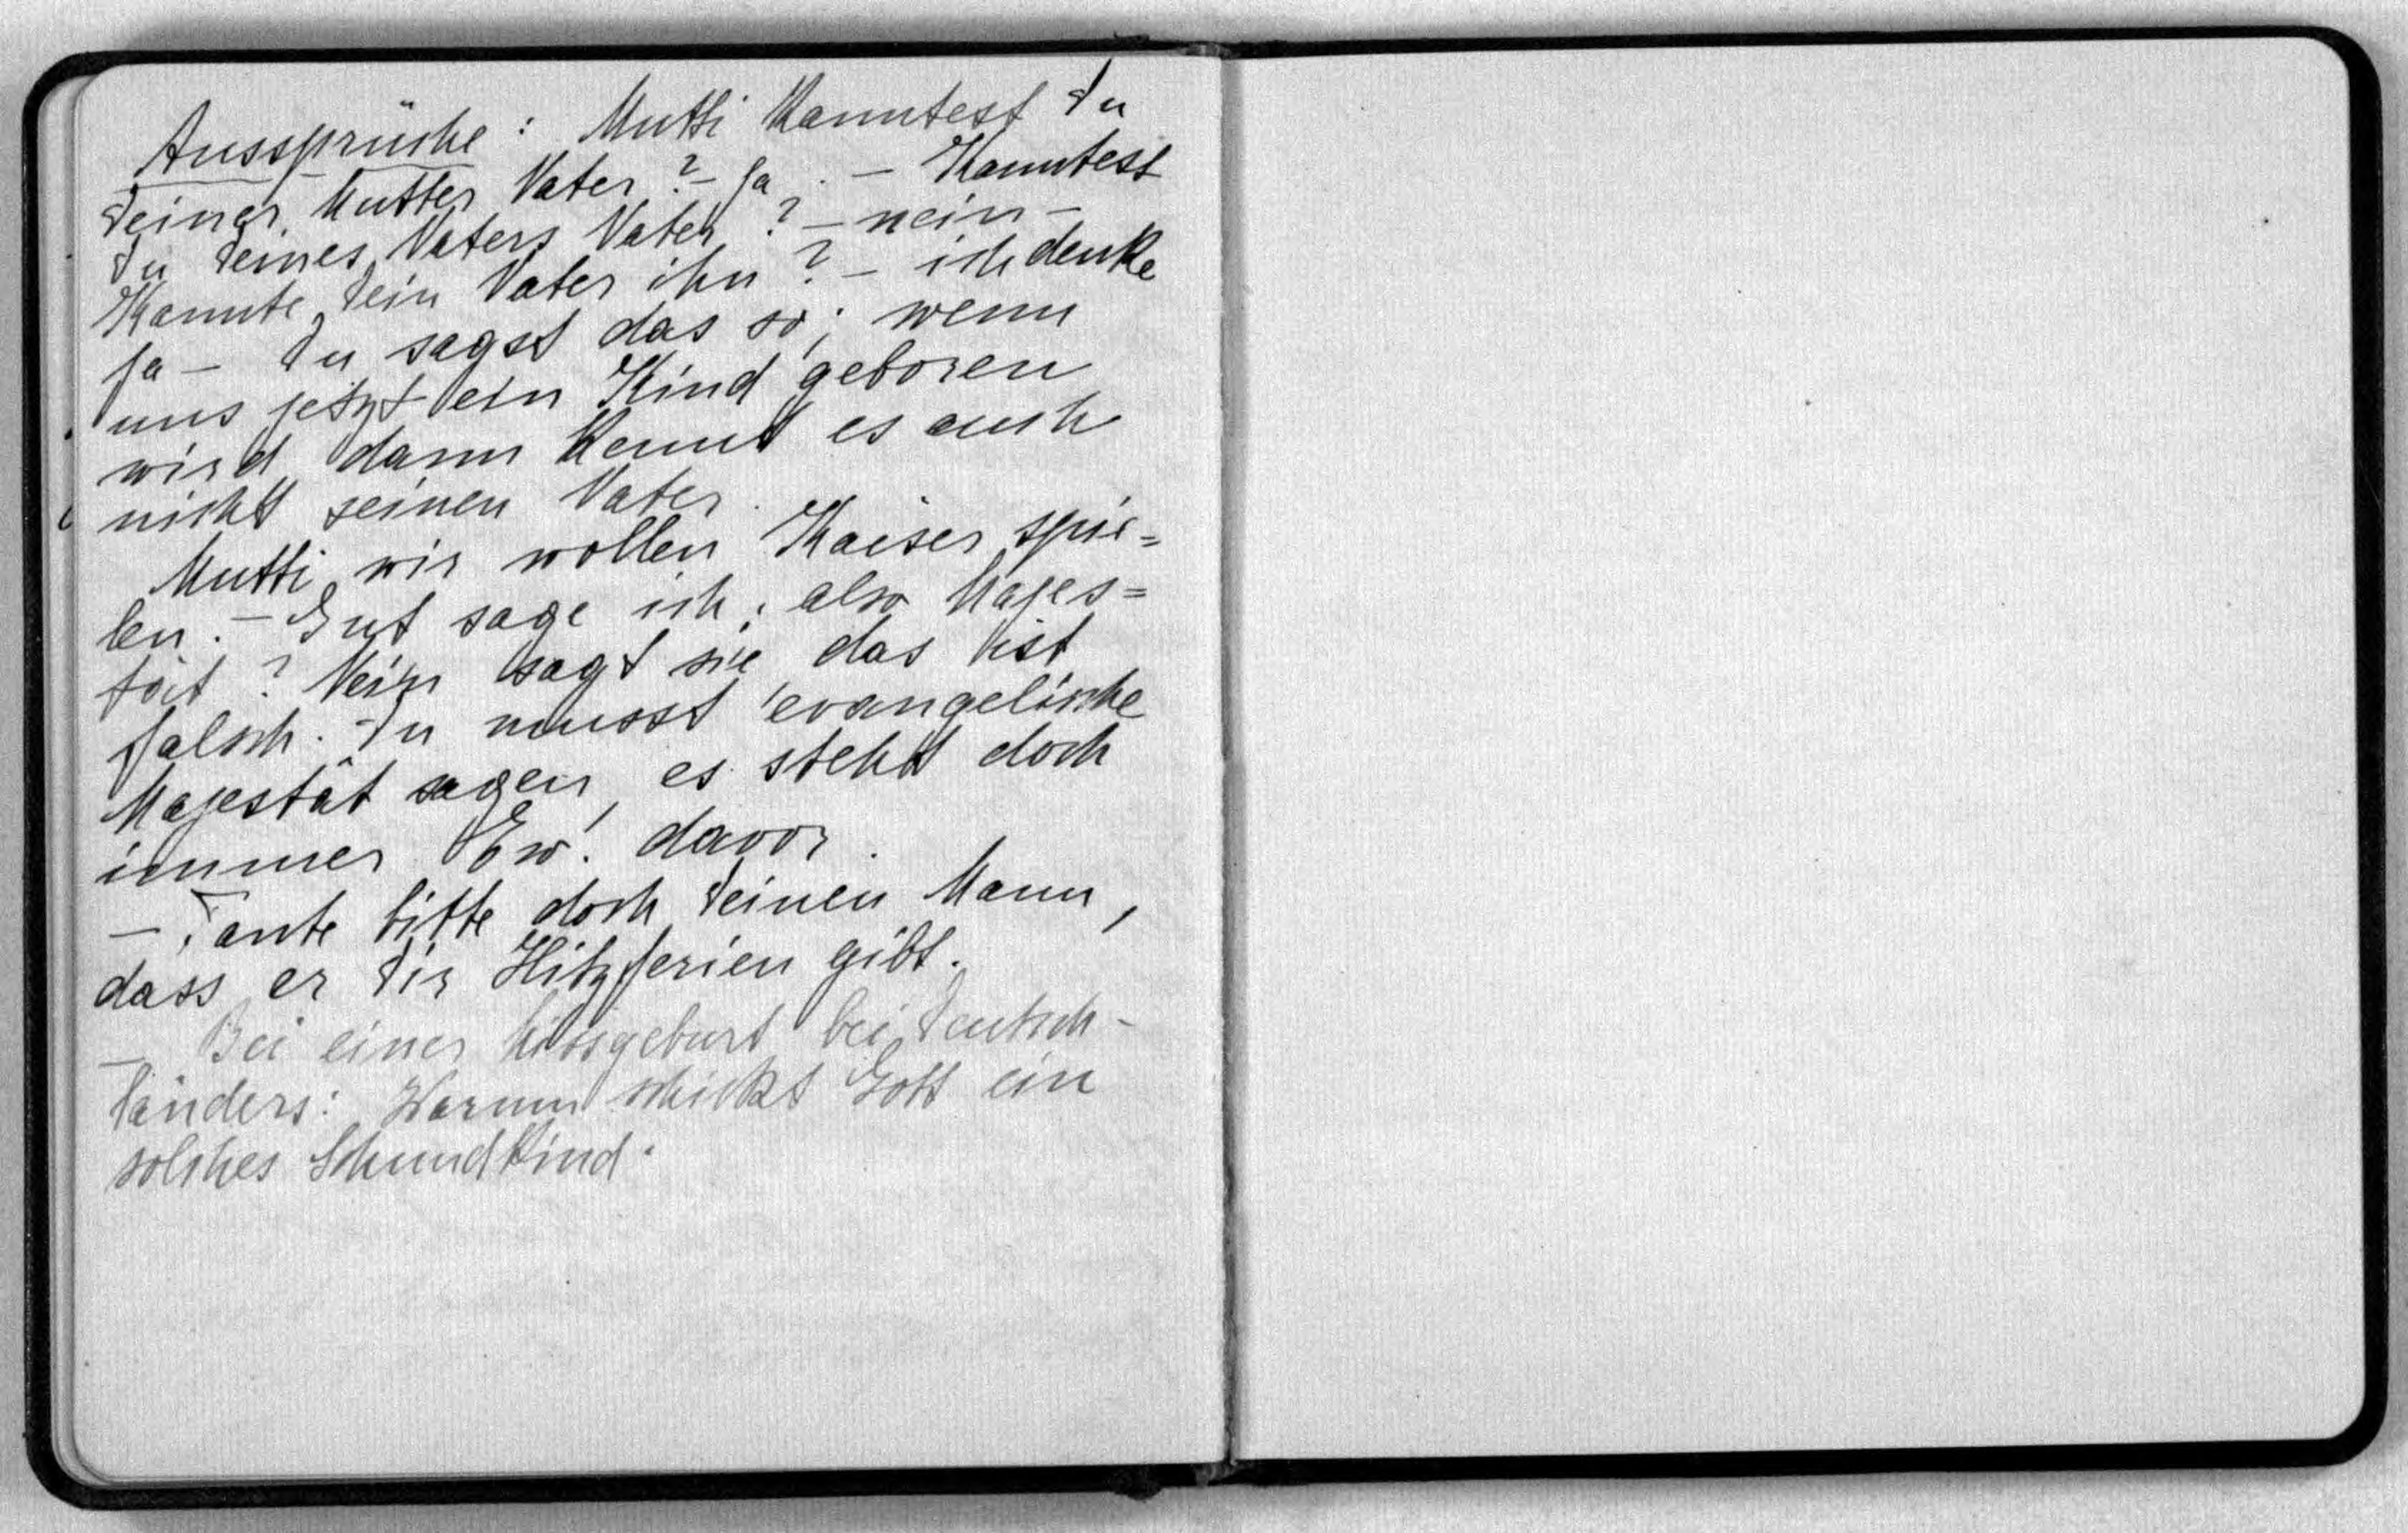 Aussprüche: Mutti kanntest Du
Deiner Mutter Vater? - Ja. - Kanntest
Du Deines Vaters Vater? - nein -
Kannte Dein Vater ihn? - ich denke
ja - Du sagst das so; wenn
uns jetzt ein Kind geboren
wird, dann kennt es auch
nicht seinen Vater.
Mutti, wir wollen Kaiser spie=
len. - Gut sage ich, also Majes=
tät? Nein sagt sie das ist
falsch. Du musst evangelische
Majestät sagen, es steht doch
immer Ew. davor.
- Tante bitte doch Deinen Mann,
dass er Dir Hitzferien gibt.
- Bei einer Missgeburt bei Deutsch-
länders: Warum schickt Gott ein
solches Schundkind.